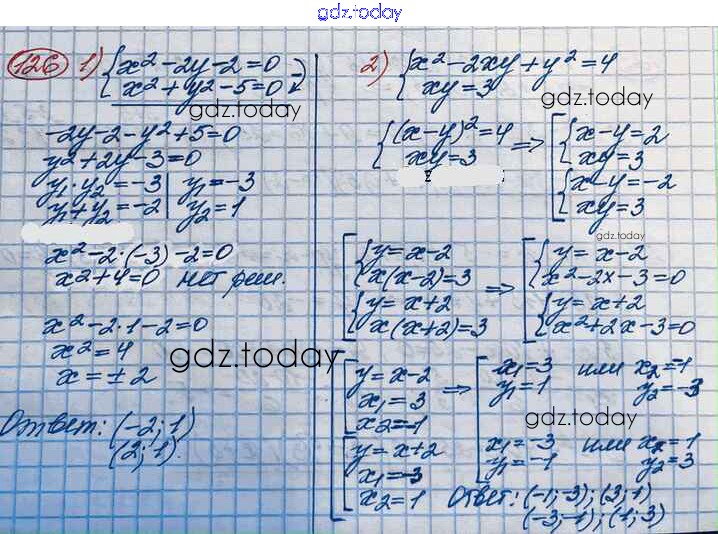 gdz.today
126 1) { x² - 2y - 2 = 0
x² + y² - 5 = 0
gdz.today
-2y - 2 - y² + 5 = 0
y² + 2y - 3 = 0
y₁ · y₂ = -3 | y₁ = -3
y₁ + y₂ = -2 | y₂ = 1
x² - 2·(-3) - 2 = 0
x² + 4 = 0 нет реш.
x² - 2·1 - 2 = 0
x² = 4
gdz.today
x = ± 2
Ответ: (-2; 1)
(2; 1)
2) { x² - 2xy + y² = 4
xy = 3
gdz.today
{ (x - y)² = 4 => [ { x - y = 2
xy = 3 xy = 3
{ x - y = -2
xy = 3
gdz.today
[ { y = x - 2 => [ { y = x - 2
x(x - 2) = 3 x² - 2x - 3 = 0
{ y = x + 2 { y = x + 2
x(x + 2) = 3 x² + 2x - 3 = 0
[ [ y = x - 2 => [ x₁ = 3 или x₂ = -1
x₁ = 3 y₁ = 1 y₂ = -3
x₂ = -1
gdz.today
[ y = x + 2 x₁ = -3 или x₂ = 1
x₁ = -3 y₁ = -1 y₂ = 3
x₂ = 1 Ответ: (-1; -3); (3; 1)
(-3; -1); (1; 3)